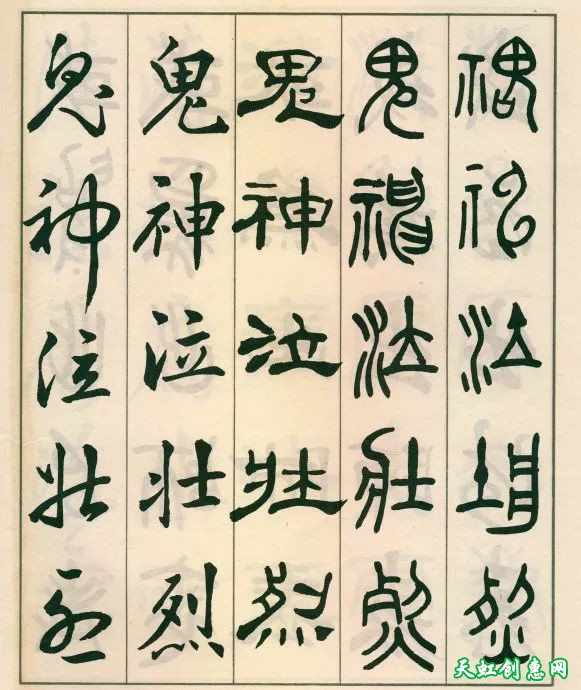 鬼神泣壯烈
鬼神泣壯烈
鬼神泣壯烈
鬼神泣壮烈
鬼神泣壮烈
天虹创惠网